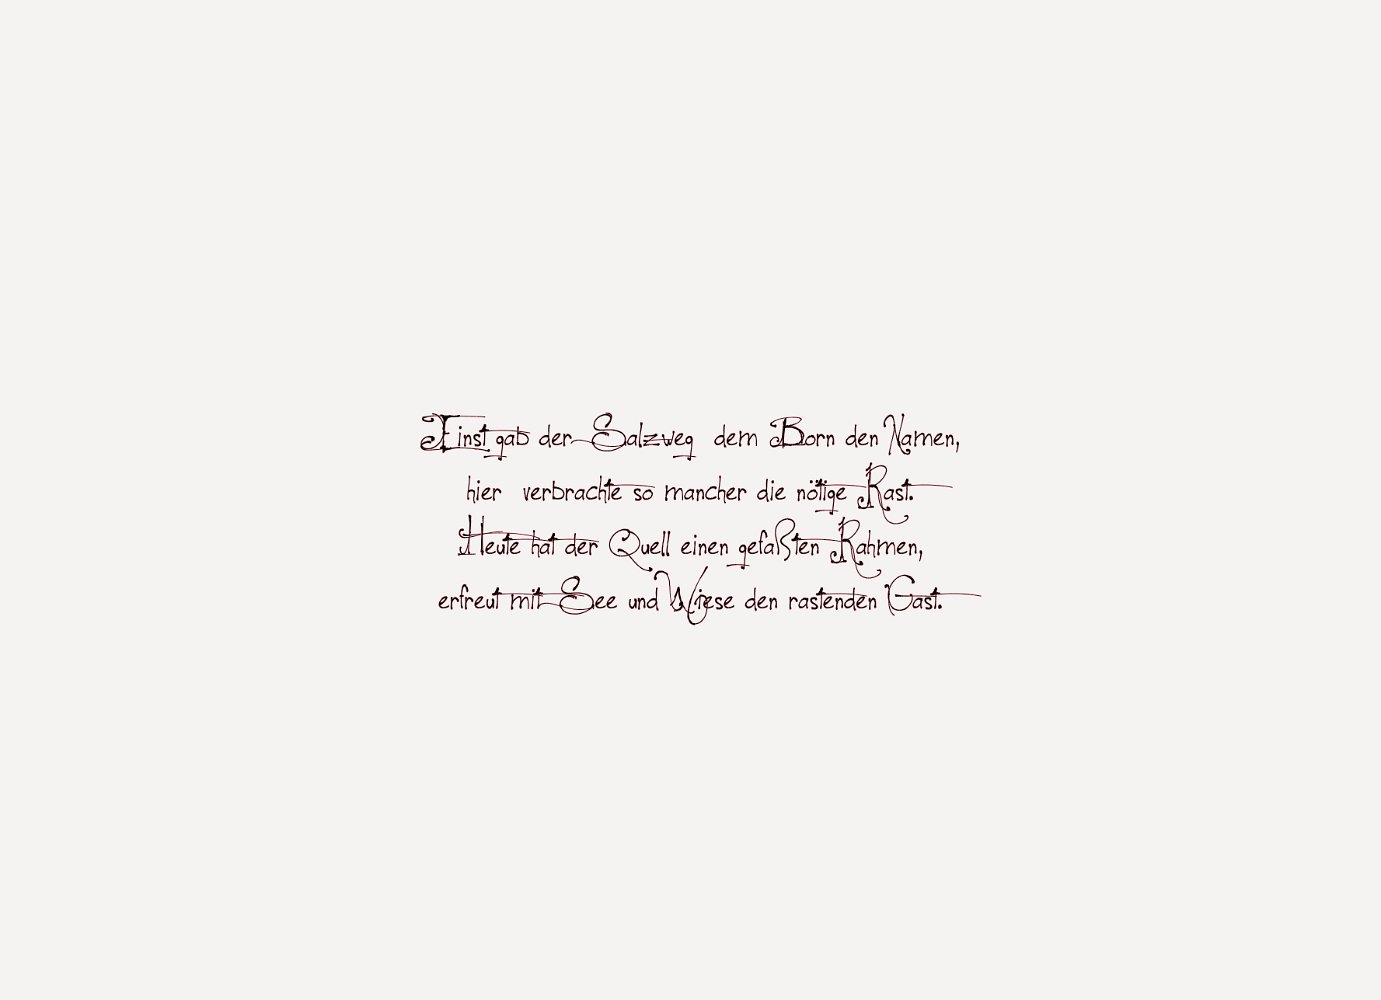 Einst gab der Salzweg dem Born den Namen,
hier verbrachte so mancher die nötige Rast.
Heute hat der Quell einen gefaßten Rahmen,
erfreut mit See und Wiese den rastenden Gast.